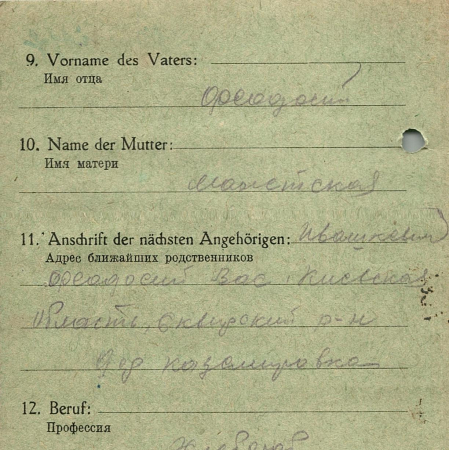 9. Vorname des Vaters:
Имя отца
Феодосий
10. Name der Mutter:
Имя матери
11. Anschrift der nächsten Angehörigen: Ивашкевич
Адрес ближайших родственников
Феодосий Вас. Киевская
Область Сквирский р-н
дер Казимировка
12. Beruf:
Профессия